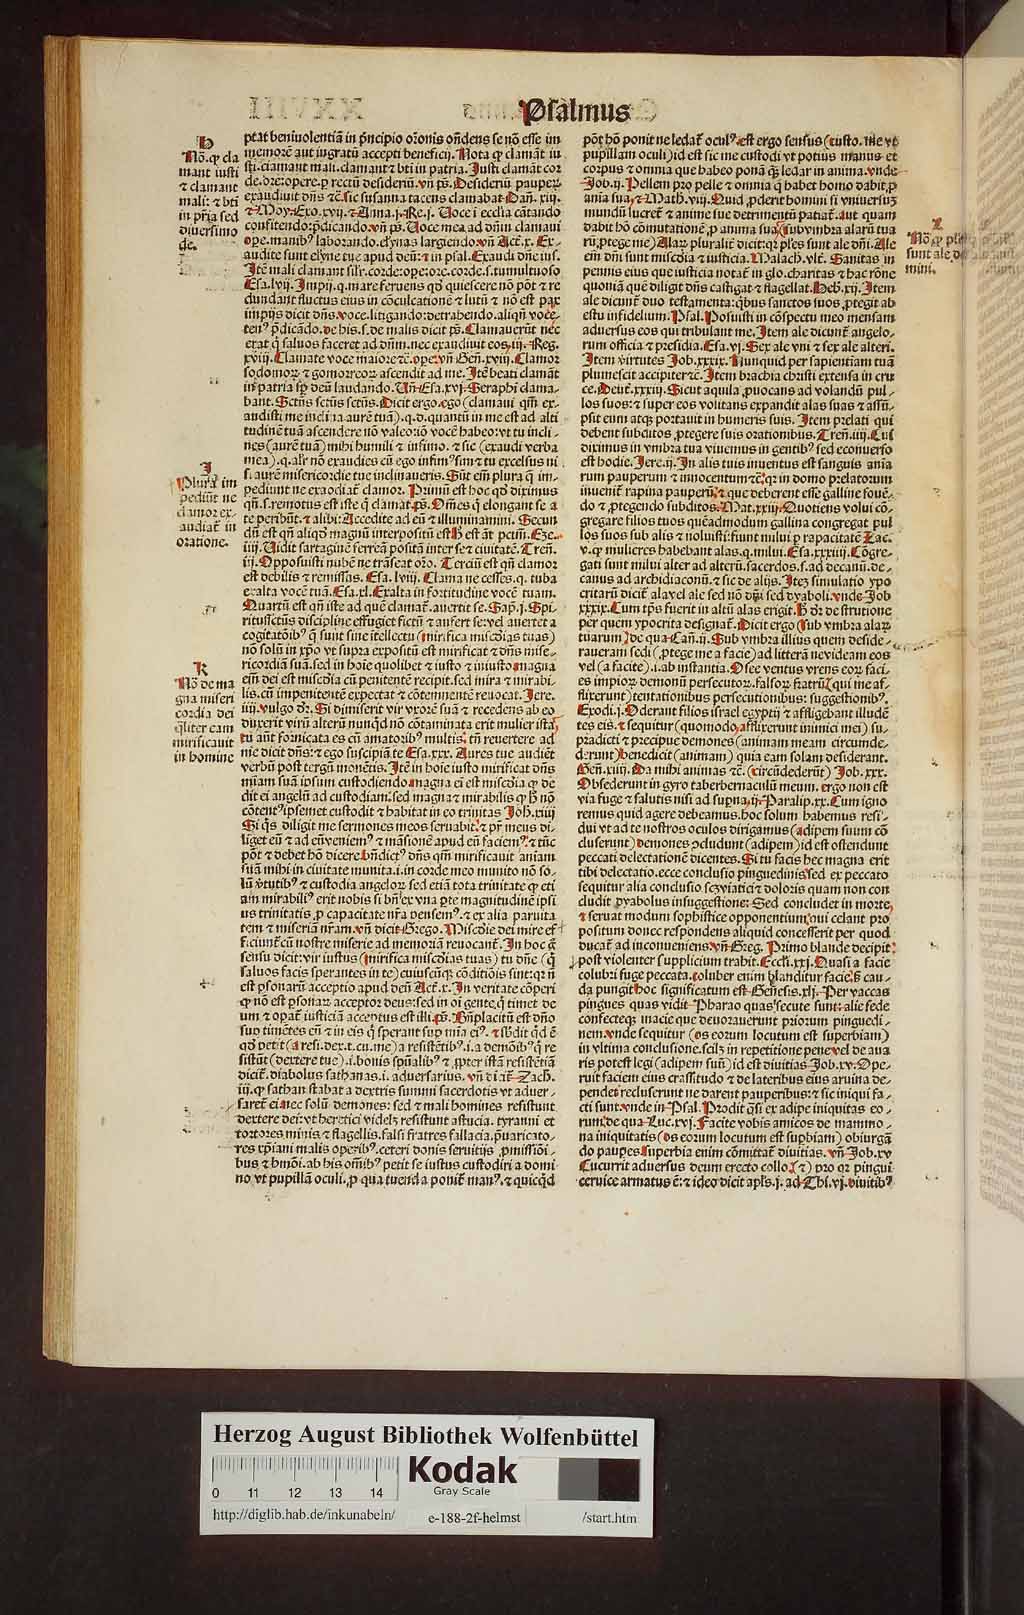 Psalmus
H
Nõ. ꝙ cla
mant iusti
⁊ clamant
mali: ⁊ bti
in pr̃ia sed
diuersimo
de.
ptat beniuolentiã in pñcipio or̃onis oñdens se nõ esse im
memorẽ aut ingratũ accepti beneficij. Nota ꝙ clamãt iu
sti. clamant mali. clamant ⁊ bti in patria. Justi clamãt cor
exaudiuit dñs ⁊c̃. sic susanna tacens clamabat. Dañ. xiij.
⁊ Moy. Exo. xvij. ⁊ Anna. j. Re. j. Uoce i eccl̃ia cãtando
confitendo: p̃dicando. vñ ps̃. Uoce mea ad dñm clamaui
ope. manibꝰ laborando. el̃ynas largiendo. vñ Act̃. x. Ex-
audite sunt el̃yne tue apud deũ: ⁊ in psal. Exaudi dñe ius.
Itẽ mali clamant sil̃r. corde: ope: ore. corde. s. tumultuoso
Esa. lvij. Impij. q. mare feruens qđ quiescere nõ põt ⁊ re
dundant fluctus eius in cõculcationẽ ⁊ lutũ ⁊ nõ est pax
impijs dicit dñs. voce. litigando: detrahendo. aliqñ voce
tenꝰ p̃dicãdo. de his. s. de malis dicit ps̃. Clamauerũt nec
erat q̃ saluos faceret ad dñm. nec exaudiuit eos. iij. Reg.
xviij. Clamate voce maiore ⁊c̃. ope: vñ Gen̄. xviij. Clamor
sodomoꝝ ⁊ gomorreoꝝ ascendit ad me. Itẽ beati clamãt
in patria sp̃ deũ laudando. Uñ Esa. xvj. Seraphi clama-
bant. Sctũs sctũs sctũs. Dicit ergo ego (clamaui qm̃ ex-
audisti me inclina aurẽ tuã). q. d. quantũ in me est ad alti
tudinẽ tuã ascendere nõ valeo: iõ vocẽ habeo: vt tu incli-
nes (aurẽ tuã) mihi humili ⁊ infimo. ⁊ sic (exaudi verba
mea). q. al̃r nõ exaudies cũ ego infimꝰ sim ⁊ tu excelsus ni
s. aurẽ misericordie tue inclinaueris. Sũt eñ plura q̃ im-
pediunt ne exaudiat̃ clamor. Primũ est hoc qđ diximus
J
Plura im
pediũt ne
clamor ex-
audiat̃ in
oratione.
qñ. s. remotus est iste q̃ clamat. ps̃. Om̃es q̃ elongant se a
te peribũt. ⁊ alibi: Accedite ad eũ ⁊ illuminamini. Secun
dũ est qñ aliqđ magnũ interpositũ est
iiij. Uidit sartaginẽ ferreã positã inter se ⁊ ciuitatẽ. Tren̄.
iij. Opposuisti nubẽ ne trãseat or̃o. Terciũ est qñ clamor
est debilis ⁊ remissus. Esa. lviij. Clama ne cesses. q. tuba
exalta vocẽ tuã. Esa. xl. Exalta in fortitudine vocẽ tuam.
Quartũ est qñ iste ad quẽ clamat̃. auertit se. Sap̃. j. Spi
ritussctũs discipline effugiet fictũ ⁊ aufert se: vel auertet a
cogitatõibꝰ q̃ sunt sine ĩtellectu (mirifica miscõias tuas)
nõ solũ in xp̃o vt supra expositũ est mirificat ⁊ dñs mise-
ricordiã suã. sed in hoĩe quolibet ⁊ iusto ⁊ iniusto
K
Nõ de ma
gna miseri
cordia dei
qͣliter eam
mirificauit
in homine
eĩ dei est miscõia cũ penitentẽ recipit. sed mira ⁊ mirabi-
lis. cũ impenitentẽ expectat ⁊ cõtemnentẽ reuocat. Jere.
iij. vulgo dr̃. Si dimiserit vir vxorẽ suã ⁊ recedens ab eo
duxerit virũ alterũ nunqđ nõ cõtaminata erit mulier ista
tu aũt fornicata es cũ amatoribꝰ multis. tñ reuertere ad
me dicit dñs: ⁊ ego suscipiã te Esa. xxx. Aures tue audiẽt
verbũ post tergũ monẽtis. Itẽ in hoĩe iusto mirificat dñs
mĩam suã ipsum custodiendo magna ei est miscõia ꝙ de
dit ei angelũ ad custodiam: sed magna ⁊ mirabilis
cõtentꝰ ipsemet custodit ⁊ habitat in eo trinitas Joh. xiiij
Si q̃s diligit me sermones meos seruabit. ⁊ pr̃ meus di-
liget eũ ⁊ ad eũ veniemꝰ ⁊ mãsionẽ apud eũ faciemꝰ. ⁊ tũc
põt ⁊ debet hõ dicere bñdictꝰ dñs qm̃ mirificauit aniam
suã mihi in ciuitate munita. i. in corde meo munito nõ so-
lũ virtutibꝰ ⁊ custodia angeloꝝ sed etiã tota trinitate
sensu dicit: vir iustus (mirifica miscõias tuas) tu dñe (q̃
saluos facis sperantes in te) cuiuscũqꝫ cõditiõis sint: qꝛ ñ
est ꝑsonarũ acceptio apud deũ Act̃. x. In veritate cõperi
ꝙ nõ est ꝑsonaꝝ acceptor deus: sed in oĩ gente. q̃ timet de
um ⁊ opat̃ iusticiã acceptus est illi. ps̃. Bñplacitũ est dño
sup timẽtes eũ ⁊ in eis q̃ sperant sup mĩa eiꝰ.
qđ petit (a resi. dex. t. cu. me) a resistẽtibꝰ. i. a demõibꝰ q̃ re
sistũt (dextere tue). i. bonis spũalibꝰ ⁊ ꝓpter istã resistẽtiã
dicit̃. diabolus sathanas. i. aduersarius. vñ dicit̃. Zach.
iij. ꝙ sathan stabat a dextris summi sacerdotis vt aduer-
saret̃ ei: nec solũ demones: sed ⁊ mali homines resistunt
dextere dei: vt heretici videlꝫ resistunt astucia. tyranni et
tortores minis ⁊ flagellis. falsi fratres fallacia. p̃uaricato-
res xp̃iani malis operibꝰ. ceteri donis seruitijs ꝓmissiõi-
bus ⁊ hm̃õi. ab his om̃ibꝰ petit se iustus custodiri a domi
no vt pupillã oculi. ꝓ qua tuenda ponit̃ manꝰ. ⁊ quicqͥd
põt hõ ponit ne ledat̃ oculꝰ. est ergo sensus (custo. me vt
pupillam oculi) id est sic me custodi vt potius manus et
corpus ⁊ omnia que habeo ponã qꝫ ledar in anima. vnde
Job. ij. Pellem pro pelle ⁊ omnia q̃ habet homo dabit ꝓ
ania sua. ⁊ Math. viij. Quid ꝓderit homini si vniuersuꝫ
mundũ lucret̃ ⁊ anime sue detrimentũ patiat̃. aut quam
dabit hõ cõmutationẽ ꝓ anima sua (sub vmbra alarũ tua
rũ ꝓtege me) Alaꝝ pluralit̃ dicit: qꝛ pl̃es sunt ale dñi. Ale
L
Nõ ꝙ pl̃es
sunt ale do
mini.
em̃ dñi sunt miscõia ⁊ iusticia. Malach. vlt̃. Sanitas in
pennis eius que iusticia notat̃ in glo. charitas ⁊ hac rõne
quoniã que diligit dñs castigat ⁊ flagellat. Heb. xij. Item
ale dicunt̃ duo testamenta: qͥbus sanctos suos ꝓtegit ab
estu infidelium. Psal. Posuisti in cõspectu meo mensam
aduersus eos qui tribulant me. Item ale dicunt̃ angelo-
rum officia ⁊ presidia. Esa. vj. Sex ale vni ⁊ sex ale alteri.
Item virtutes Job. xxxix. Nunquid per sapientiam tuã
plumescit accipiter ⁊c̃. Item brachia christi extensa in cru
ce. Deut̃. xxxij. Sicut aquila ꝓuocans ad volandũ pul-
los suos: ⁊ super eos volitans expandit alas suas ⁊ assũ-
psit eum atqꝫ portauit in humeris suis. Item prelati qui
debent subditos ꝓtegere suis orationibus. Tren̄. iiij. Cui
diximus in vmbra tua viuemus in gentibꝰ sed econuerso
est hodie. Jere. ij. In alis tuis inuentus est sanguis aniarum
rum pauperum ⁊ innocentum ⁊c̃. qꝛ in domo prelatorum
inuenit̃ rapina pauperũ. ⁊ que deberent esse galline fouẽ-
do ⁊ ꝓtegendo subditos. Mat. xxiij. Quotiens volui cõ-
gregare filios tuos quẽadmodum gallina congregat pul
los suos sub alis ⁊ noluisti: fiunt milui ꝓ rapacitatẽ Zac.
v. ꝙ mulieres habebant alas. q. milui. Esa. xxxiiij. Cõgre-
gati sunt milui alter ad alterũ. sacerdos. s. ad decanũ. de-
canus ad archidiaconũ. ⁊ sic de alijs. Iteꝫ simulatio ypo
critarũ dicit̃ ala vel ale sed nõ dñi sed dyaboli. vnde Job
xxxix. Cum tp̃s fuerit in altũ alas erigit.
per quem ypocrita designat̃. Dicit ergo (sub vmbra alaꝝ
tuarum) de qua Cañ. ij. Sub vmbra illius quem deside-
raueram sedi (ꝓtege me a facie) ad litterã ne videam eos
vel (a facite). i. ab instantia. Osee ventus vrens eoꝝ faci-
es impioꝝ demonũ persecutoꝝ. falsoꝝ fratrũ (qui me af-
flixerunt) tentationibus persecutionibus: suggestionibꝰ.
Exodi. j. Oderant filios israel egyptij ⁊ affligebant illudẽ
tes eis. ⁊ sequitur (quomodo afflixerunt inimici mei) su-
pradicti ⁊ precipue demones (animam meam circumde-
derunt) benedicit (animam) quia eam solam desiderant.
Gen̄. xiiij. Da mihi animas ⁊c̃. (circũdederũt) Job. xxx.
Obsederunt in gyro tabernaculũ meum. ergo non est
via fuge ⁊ salutis nisi ad supna. ij. Paralip. xx. Cum igno
remus quid agere debeamus. hoc solum habemus resi-
dui vt ad te nostros oculos dirigamus (adipem suum cõ
cluserunt) demones ꝯcludunt (adipem) id est ostendunt
peccati delectationẽ dicentes. Si tu facis hec magna erit
tibi delectatio. ecce conclusio pinguedinis sed ex peccato
sequitur alia conclusio scꝫ viatici ⁊ doloris quam non con
cludit dyabolus in suggestione: Sed concludet in morte.
⁊ seruat modum sophistice opponentium qui celant pro
positum donec respondens aliquid concesserit per quod
ducat̃ ad inconueniens. vñ Greg. Primo blande decipit:
post violenter supplicium trabit. Eccl̃i. xxj. Quasi a facie
colubri fuge peccata. coluber enim blanditur facie. ⁊ cau-
da pungit hoc significatum est Genesis. xlj. Per vaccas
pingues quas vidit Pharao quas secute sunt: alie fede
confecteqꝫ macie que deuorauerunt priorum pinguedi-
nem. vnde sequitur (os eorum locutum est superbiam)
in vltima conclusione. scilꝫ in repetitione pene vel de aua
ris potest legi (adipem suũ) id est diuitias Job. xv. Ope-
ruit faciem eius crassitudo ⁊ de lateribus eius aruina de-
pendet recluserunt ne darent pauperibus: ⁊ sic iniqui fa-
cti sunt. vnde in Psal. Prodit qͣsi ex adipe iniquitas eo-
rum: de qua Luc. xvj. Facite vobis amicos de mammo-
na iniquitatis (os eorum locutum est supbiam) obiurgã
do paupes superbia enim cõmittat̃ diuitias. vñ Job. xv
Cucurrit aduersus deum erecto collo. (⁊) pro qꝛ pingui
ceruice armatus ẽ: ⁊ ideo dicit apl̃s. j. ad Thi. vj. diuitibꝰ
Herzog August Bibliothek Wolfenbüttel
0 11 12 13 14
Kodak
Gray Scale
http://diglib.hab.de/inkunabeln/ e-188-2f-helmst /start.htm